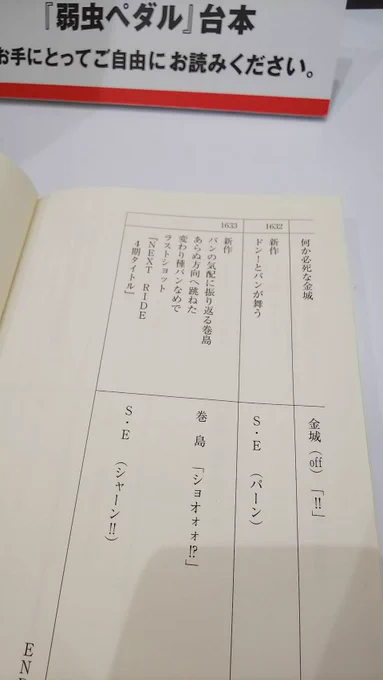 『弱虫ペダル』台本
お手にとってご自由にお読みください。
何か必死な金城
金城(off)「!!」
1632
新作
ドン!とパンが舞う
S・E (パーン)
1633
新作
パンの気配に振り返る巻島
あらぬ方向へ跳ねた
変わり種パンなめで
ラストショット
『NEXT RIDE
4期タイトル』
巻島 「ショオォォ!?」
S・E (シャーン!!)